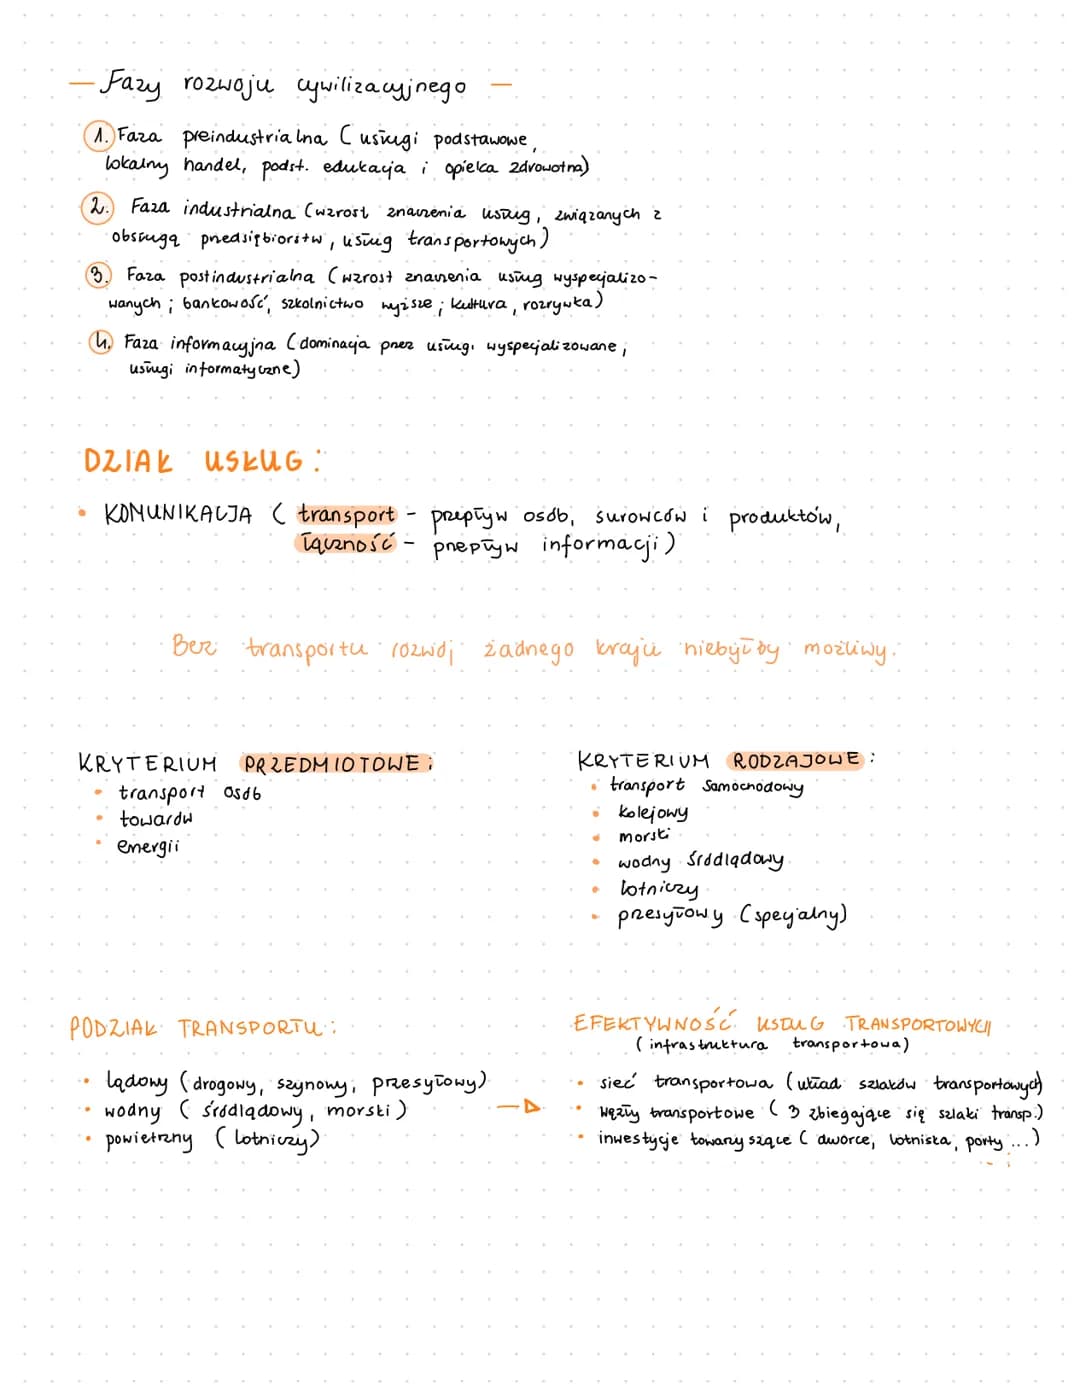 — Fazy rozwoju cywilizacyjnego —
1. Faza preindustrialna (usługi podstawowe,
lokalny handel, podst. edukacja i opieka zdrowotna)
2. Faza industrialna (wzrost znaczenia usług, związanych z
obsługą przedsiębiorstw, usług transportowych)
3. Faza postindustrialna (wzrost znaczenia usług wyspecjalizo-
wanych; bankowość, szkolnictwo wyższe; kultura, rozrywka)
4. Faza informacyjna (dominacja przez usługi wyspecjalizowane,
usługi informatyczne)
DZIAŁ USŁUG:
• KOMUNIKACJA (transport - przepływ osób, surowców i produktów,
łączność - przepływ informacji)
Bez transportu rozwój żadnego kraju niebyłby możliwy.
KRYTERIUM PRZEDMIOTOWE:
• transport osób
• towarów
• energii
KRYTERIUM RODZAJOWE:
• transport samochodowy
• kolejowy
• morski
• wodny śródlądowy
• lotniczy
• przesyłowy (specjalny)
PODZIAŁ TRANSPORTU:
• lądowy (drogowy, szynowy, przesyłowy)
• wodny (śródlądowy, morski)
• powietrzny (lotniczy)
EFEKTYWNOŚĆ USŁUG TRANSPORTOWYCH
(infrastruktura transportowa)
• sieć transportowa (układ szlaków transportowych)
• węzły transportowe (3 zbiegające się szlaki transp.)
• inwestycje towarzyszące (dworce, lotniska, porty...)